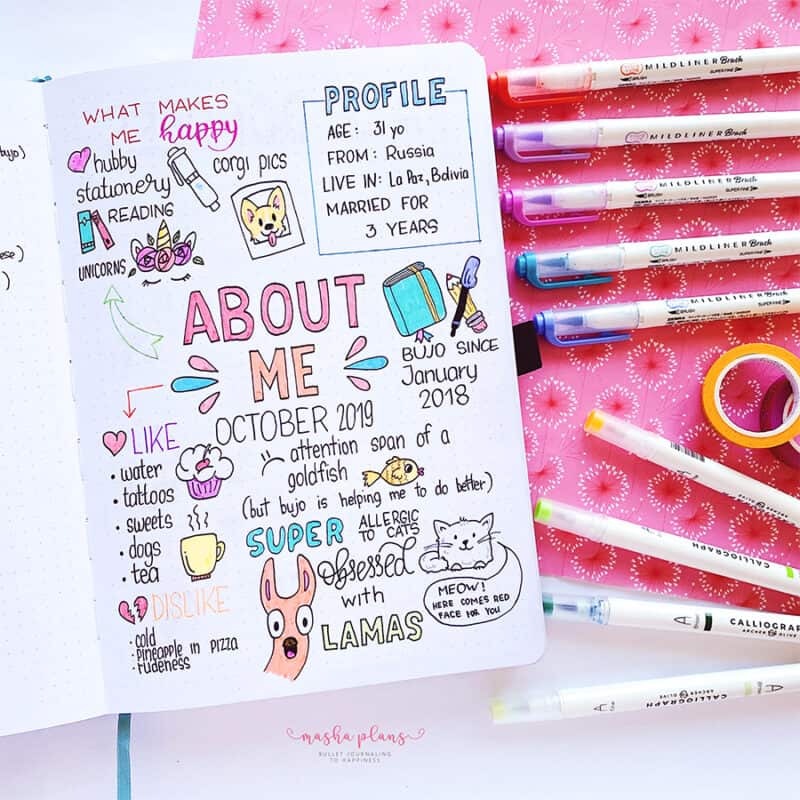 WHAT MAKES
ME happy
hubby
stationery
corgi pics
READING
UNICORNS
PROFILE
AGE: 31 yo
FROM: Russia
LIVE IN: La Paz, Bolivia
MARRIED FOR
3 YEARS
ABOUT
ME
OCTOBER 2019
BUJO SINCE
January
2018
LIKE
• water
• tattoos
• sweets
• dogs
• tea
attention span of a
goldfish
(but bujo is helping me to do better)
SUPER ALLERGIC
TO CATS
Obsessed
with
LAMAS
MEOW!
HERE COMES RED
FACE FOR YOU
DISLIKE
• cold
• pineapple in pizza
• rudeness
MILDLINER Brush
BRUSH SUPERFINE
MILDLINER Brush
BRUSH
MILDLINER Brush
BRUSH SUPERFINE
MILDLINER Brush
BRUSH
MILDLINER Brush
BRUSH
CALLIOGRAPH
A CALLIOGRAP
ARCHER & OLIVE
CALLIOGRAPH
ARCHER & OLIVE A
masha plans
BULLET JOURNALING
TO HAPPINESS